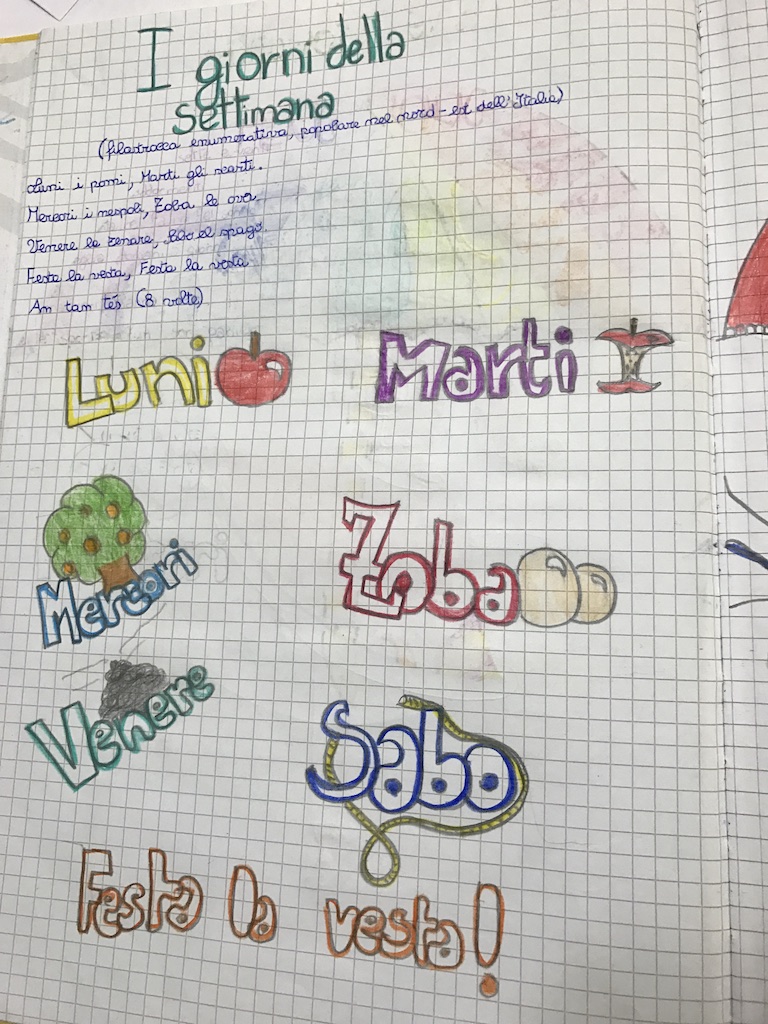 I giorni della
settimana
(filastrocca enumerativa, popolare nel nord-est dell'Italia)
Luni i pomi, Marti gli scarti.
Mercori i nespoli, Zoba le ova.
Venere la zenare, Sabo el spago.
Festa la vesta, Festa la vesta
An tam tés (8 volte)
Luni
Marti
Mercori
Zoba
Venere
Sabo
Festa la vesta!